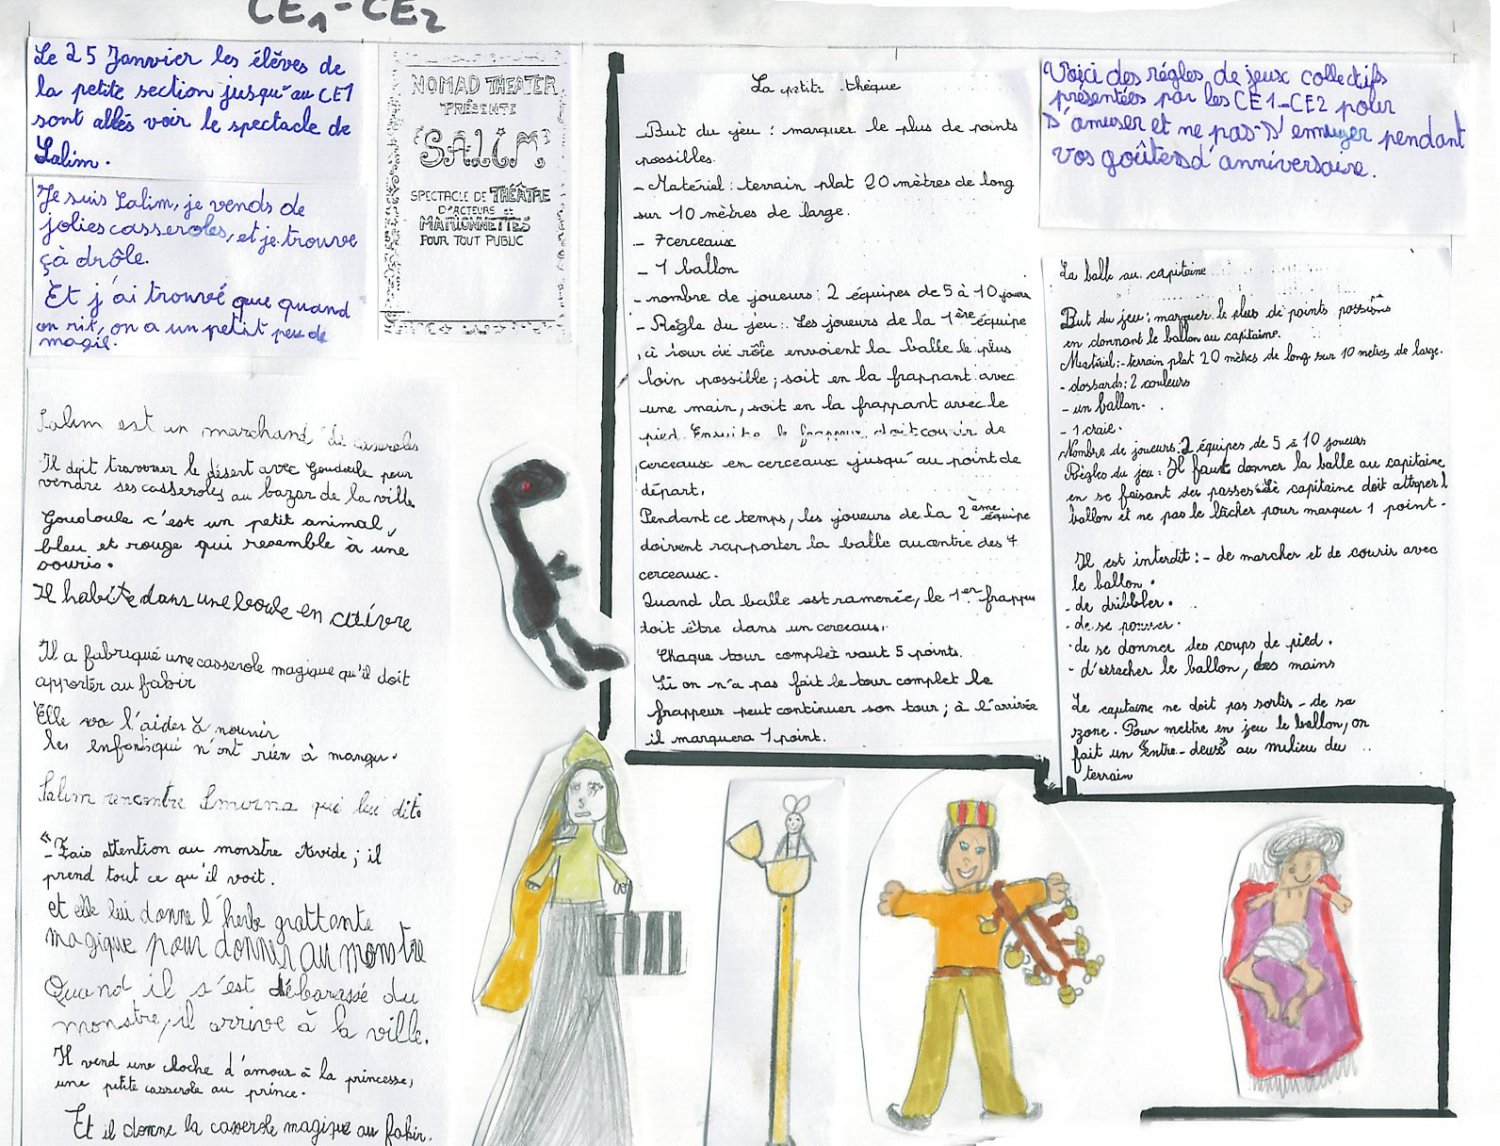 CE1-CE2
Le 25 Janvier les élèves de
la petite section jusqu'au CE1
sont allés voir le spectacle de
Salim.
Je suis Salim, je vends de
jolies casseroles, et je trouve
çà drôle.
Et j'ai trouvé que quand
on rit, on a un petit peu de
magie.
NOMAD THEATER
PRÉSENTE
"SALIM"
SPECTACLE DE THÉÂTRE
D'ACTEURS et
MARIONNETTES
POUR TOUT PUBLIC
Salim est un marchand de caseroles
Il doit traverser le désert avec Goudoule pour
vendre ses casseroles au bazar de la ville
Goudoule c'est un petit animal,
bleu et rouge qui resemble à une
souris.
Il habite dans une boule en cuivre
Il a fabriqué une casserole magique qu'il doit
apporter au fakir
Elle va l'aider à nourrir
les enfants qui n'ont rien à manger.
Salim rencontre Smurna qui lui dit:
"- Fais attention au monstre Avide; il
prend tout ce qu'il voit.
et elle lui donne l'herbe grattante
magique pour donner au monstre
Quand il s'est débarassé du
monstre, il arrive à la ville.
Il vend une cloche d'amour à la princesse,
une petite casserole au prince.
Et il donne la casserole magique au fakir.
La petite thèque
But du jeu : marquer le plus de points
possibles.
- Matériel : terrain plat 20 mètres de long
sur 10 mètres de large.
- 7 cerceaux
- 1 ballon
- nombre de joueurs : 2 équipes de 5 à 10 joueurs
- Règle du jeu : Les joueurs de la 1ère équipe
à tour de rôle envoient la balle le plus
loin possible ; soit en la frappant avec
une main, soit en la frappant avec le
pied. Ensuite le frappeur doit courir de
cerceaux en cerceaux jusqu'au point de
départ.
Pendant ce temps, les joueurs de la 2ème équipe
doivent rapporter la balle au centre des 7
cerceaux.
Quand la balle est ramenée, le 1er frappeur
doit être dans un cerceau.
Chaque tour complet vaut 5 points.
Si on n'a pas fait le tour complet le
frappeur peut continuer son tour ; à l'arrivée
il marquera 1 point.
Voici des règles de jeux collectifs
présentées par les CE1-CE2 pour
s'amuser et ne pas s'ennuyer pendant
vos goûters d'anniversaire.
La balle au capitaine
But du jeu : marquer le plus de points possibles
en donnant le ballon au capitaine.
Matériel : - terrain plat 20 mètres de long sur 10 metres de large.
- dossards : 2 couleurs
- un ballon.
- 1 craie.
Nombre de joueurs : 2 équipes de 5 à 10 joueurs
Règles du jeu : Il faut donner la balle au capitaine
en se faisant des passes. Le capitaine doit attraper l
ballon et ne pas le lâcher pour marquer 1 point.
Il est interdit : - de marcher et de courir avec
le ballon.
- de dribbler.
- de se pousser.
- de se donner des coups de pied.
- d'arracher le ballon, des mains
Le capitaine ne doit pas sortir - de sa
zone. Pour mettre en jeu le ballon, on
fait un "entre-deux" au milieu du
terrain